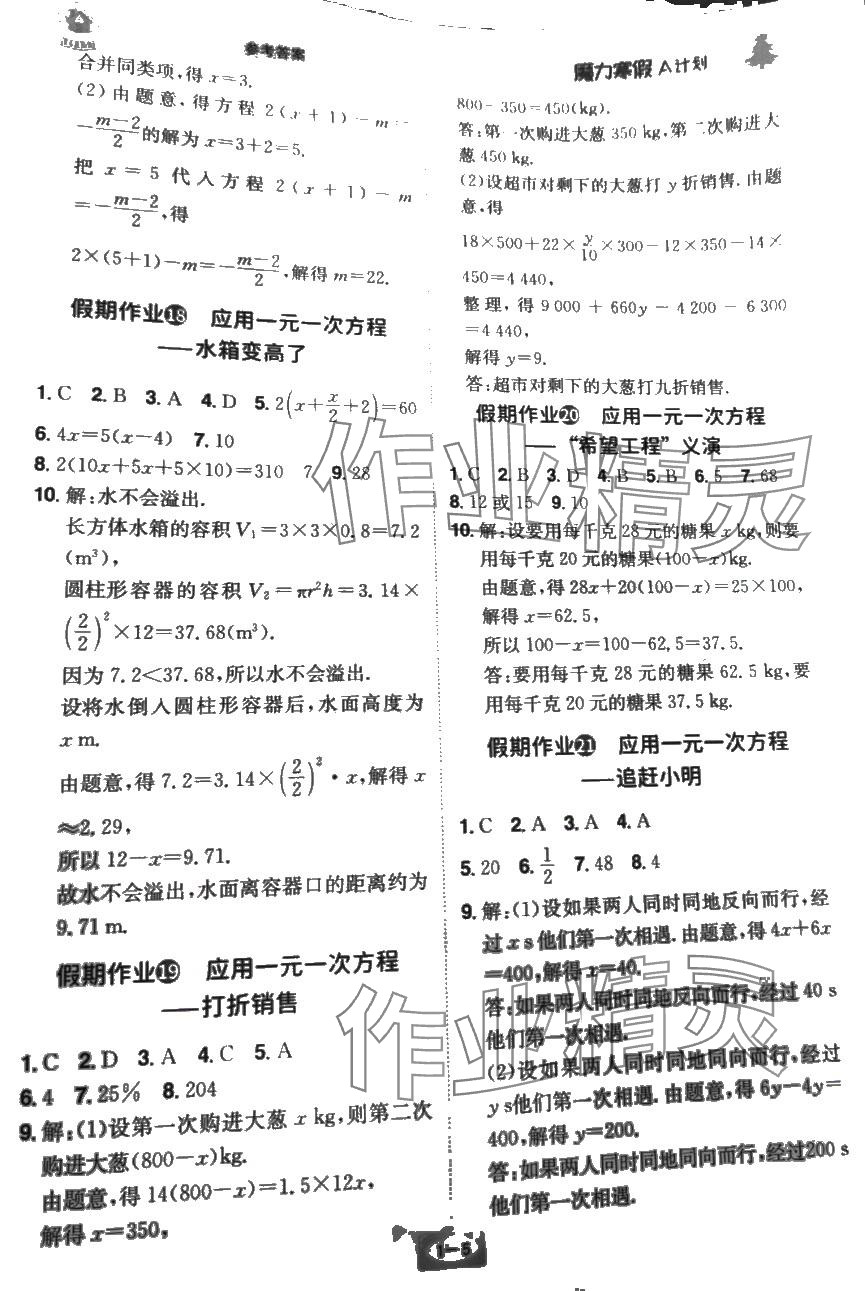 参考答案
合并同类项,得 x=3.
(2)由题意,得方程 2(x+1)-m=
-\frac{m-2}{2}的解为 x=3+2=5.
把 x=5 代入方程 2(x+1)-m
=-\frac{m-2}{2},得
2×(5+1)-m=-\frac{m-2}{2},解得 m=22.
假期作业⑱ 应用一元一次方程
——水箱变高了
1.C 2.B 3.A 4.D 5.2(x+\frac{x}{2}+2)=60
6.4x=5(x-4) 7.10
8.2(10x+5x+5×10)=310 7 9.28
10.解:水不会溢出.
长方体水箱的容积V₁=3×3×0.8=7.2
(m³),
圆柱形容器的容积 V₂=πr²h=3.14×
(\frac{2}{2})²×12=37.68(m³).
因为 7.2<37.68,所以水不会溢出.
设将水倒入圆柱形容器后,水面高度为
x m.
由题意,得 7.2=3.14×(\frac{2}{2})²·x,解得 x
≈2.29,
所以 12-x=9.71.
故水不会溢出,水面离容器口的距离约为
9.71 m.
假期作业⑲ 应用一元一次方程
——打折销售
1.C 2.D 3.A 4.C 5.A
6.4 7.25% 8.204
9.解:(1)设第一次购进大葱 x kg,则第二次
购进大葱(800-x)kg.
由题意,得 14(800-x)=1.5×12x,
解得 x=350,
魔力寒假 A计划
800-350=450(kg).
答:第一次购进大葱 350 kg,第二次购进大
葱 450 kg.
(2)设超市对剩下的大葱打 y 折销售.由题
意,得
18×500+22×\frac{y}{10}×300-12×350-14×
450=4 440,
整理,得 9 000+660y-4 200-6 300
=4 440,
解得 y=9.
答:超市对剩下的大葱打九折销售.
假期作业⑳ 应用一元一次方程
——“希望工程”义演
1.C 2.B 3.D 4.B 5.B 6.5 7.68
8.12 或 15 9.10
10.解:设要用每千克 28 元的糖果 x kg,则要
用每千克 20 元的糖果(100-x)kg.
由题意,得 28x+20(100-x)=25×100,
解得 x=62.5,
所以 100-x=100-62.5=37.5.
答:要用每千克 28 元的糖果 62.5 kg,要
用每千克 20 元的糖果 37.5 kg.
假期作业㉑ 应用一元一次方程
——追赶小明
1.C 2.A 3.A 4.A
5.20 6.\frac{1}{2} 7.48 8.4
9.解:(1)设如果两人同时同地反向而行,经
过 x s 他们第一次相遇.由题意,得 4x+6x
=400,解得 x=40.
答:如果两人同时同地反向而行,经过 40 s
他们第一次相遇.
(2)设如果两人同时同地同向而行,经过
y s他们第一次相遇.由题意,得 6y-4y=
400,解得 y=200.
答:如果两人同时同地同向而行,经过200 s
他们第一次相遇.
1-5
作业精灵
作业精灵